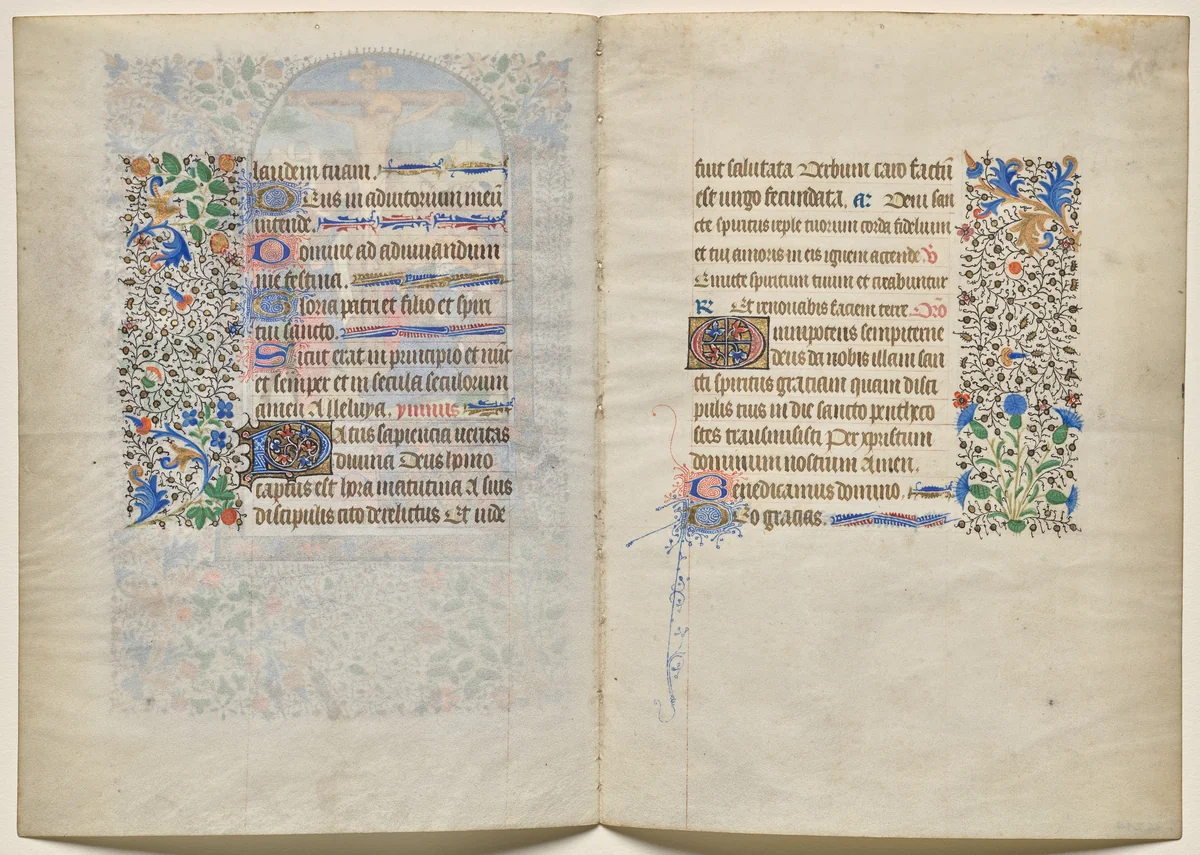 laudem tuam.
Deus in adiutorium meū
intende.
Domine ad adiuuandum
me festina.
Gloria patri et filio et spiri
tui sancto.
Sicut erat in principio et nūc
et semper et in secula seculorum
amen Alleluya. ymnus
Patris sapiencia ueritas
diuina Deus homo
captus est hora matutina A suis
discipulis cito derelictus Et iude
fuit salutata Verbum caro factū
est uirgo fecundata. a: Veni san
cte spiritus reple tuorum corda fidelium
et tui amoris in eis ignem accende. V
Emitte spiritum tuum et creabuntur
R Et renouabis faciem terre. Orō
Omnipotens sempiterne
deus da nobis illam san
cti spiritus graciam quam disci
pulis tuis in die sancto pentheco
stes transmisisti Per xpristum
dominum nostrum Amen.
Benedicamus domino.
Deo gracias.